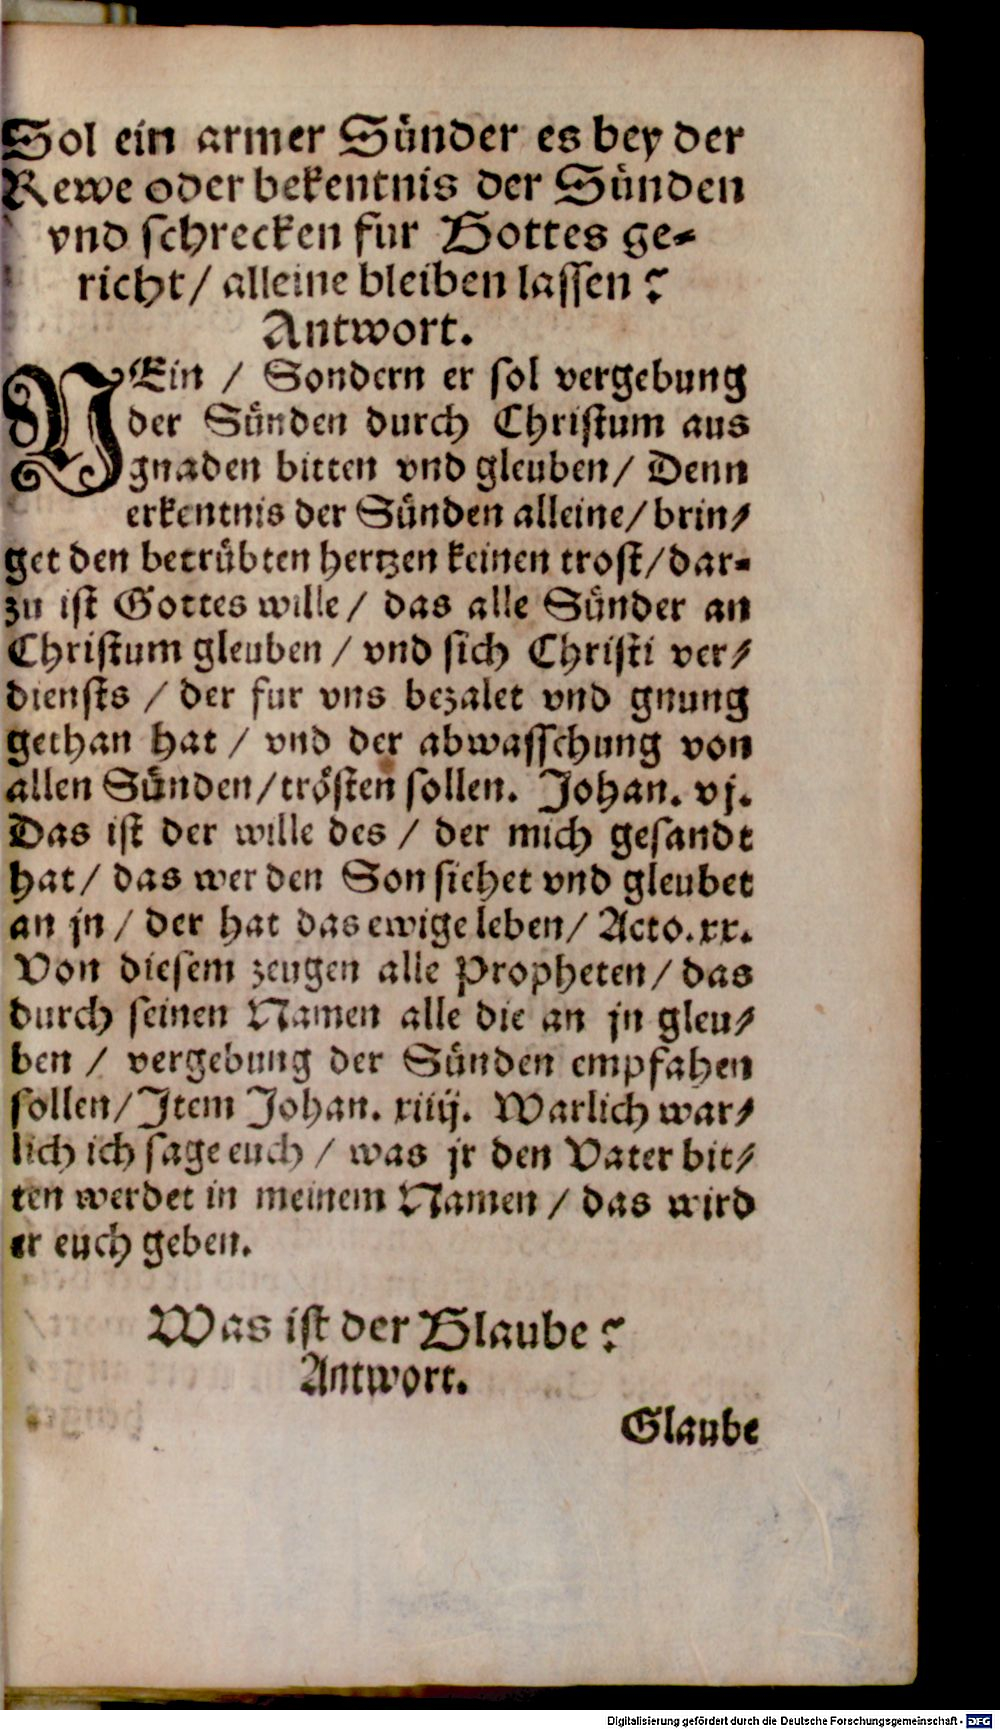 Sol ein armer Sünder es bey der
Rewe oder bekentnis der Sünden
vnd schrecken fur Gottes ge-
richt/ alleine bleiben lassen?
Antwort.
NEin / Sondern er sol vergebung
der Sünden durch Christum aus
gnaden bitten vnd gleuben/ Denn
erkentnis der Sünden alleine/ brin-
get den betrübten hertzen keinen trost/ dar-
zu ist Gottes wille/ das alle Sünder an
Christum gleuben / vnd sich Christi ver-
diensts / der fur vns bezalet vnd gnung
gethan hat / vnd der abwasschung von
allen Sünden/ trösten sollen. Johan. vj.
Das ist der wille des / der mich gesandt
hat/ das wer den Son sihet vnd gleubet
an jn / der hat das ewige leben/ Acto. xx.
Von diesem zeugen alle Propheten/ das
durch seinen Namen alle die an jn gleu-
ben / vergebung der Sünden empfahen
sollen/ Item Johan. xiiij. Warlich war-
lich ich sage euch / was jr den Vater bit-
ten werdet in meinem Namen / das wird
er euch geben.
Was ist der Glaube?
Antwort.
Glaube
Digitalisierung gefördert durch die Deutsche Forschungsgemeinschaft - DFG